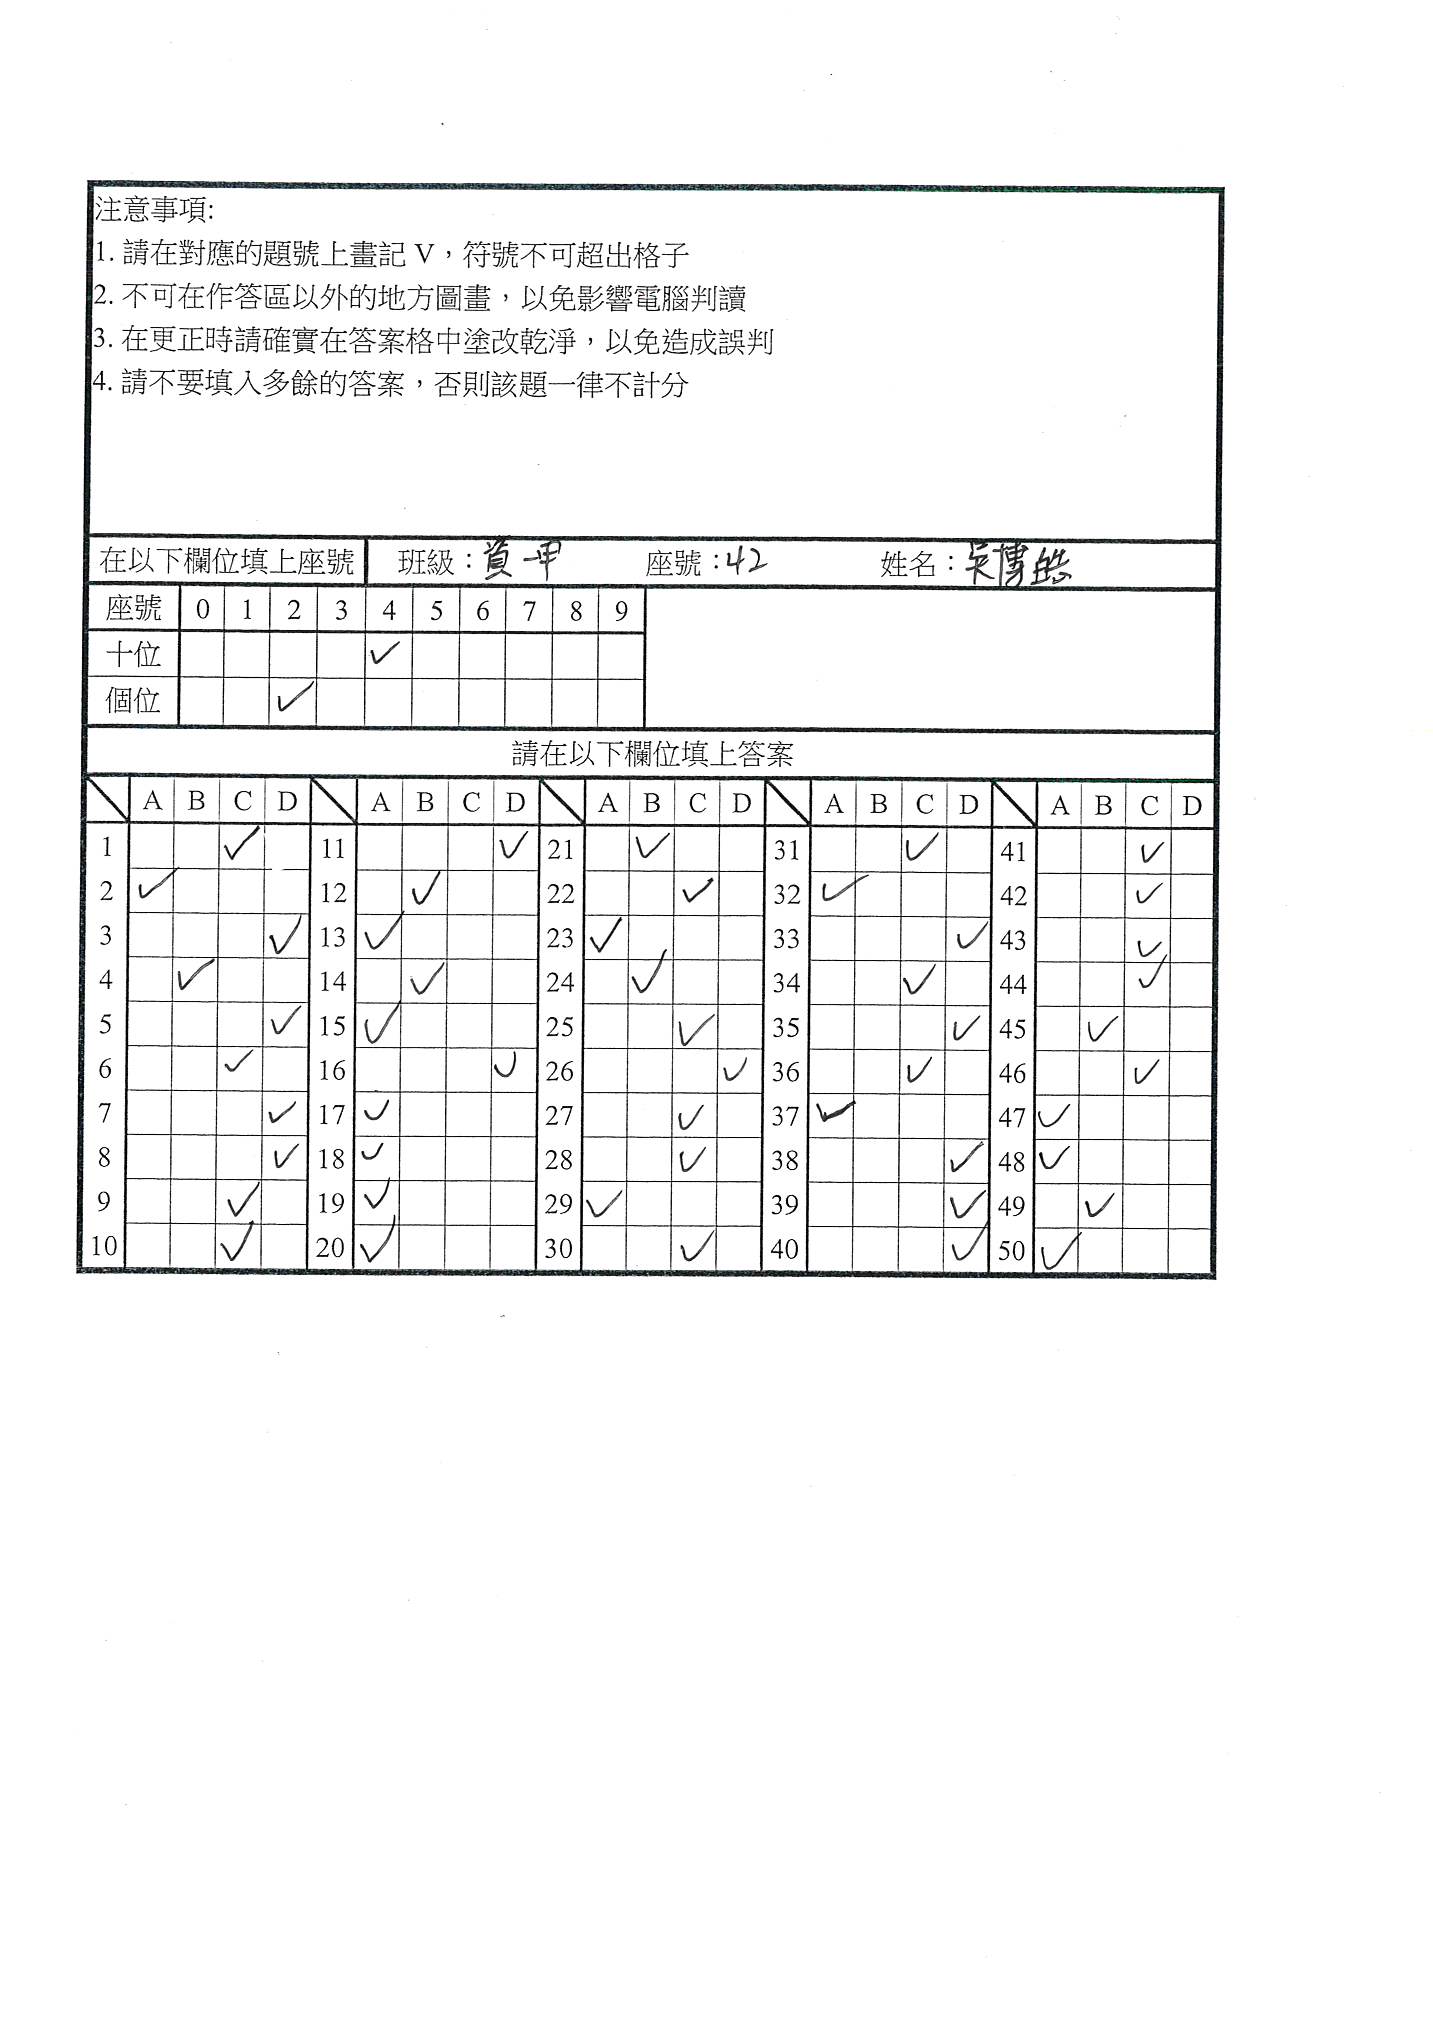 注意事項:
1. 請在對應的題號上畫記 V，符號不可超出格子
2. 不可在作答區以外的地方圖畫，以免影響電腦判讀
3. 在更正時請確實在答案格中塗改乾淨，以免造成誤判
4. 請不要填入多餘的答案，否則該題一律不計分
在以下欄位填上座號 班級：資一甲 座號：42 姓名：吳博皓
座號 0 1 2 3 4 5 6 7 8 9
十位 ✓
個位 ✓
請在以下欄位填上答案
A B C D A B C D A B C D A B C D A B C D
1 ✓ 11 ✓ 21 ✓ 31 ✓ 41 ✓
2 ✓ 12 ✓ 22 ✓ 32 ✓ 42 ✓
3 ✓ 13 ✓ 23 ✓ 33 ✓ 43 ✓
4 ✓ 14 ✓ 24 ✓ 34 ✓ 44 ✓
5 ✓ 15 ✓ 25 ✓ 35 ✓ 45 ✓
6 ✓ 16 ✓ 26 ✓ 36 ✓ 46 ✓
7 ✓ 17 ✓ 27 ✓ 37 ✓ 47 ✓
8 ✓ 18 ✓ 28 ✓ 38 ✓ 48 ✓
9 ✓ 19 ✓ 29 ✓ 39 ✓ 49 ✓
10 ✓ 20 ✓ 30 ✓ 40 ✓ 50 ✓